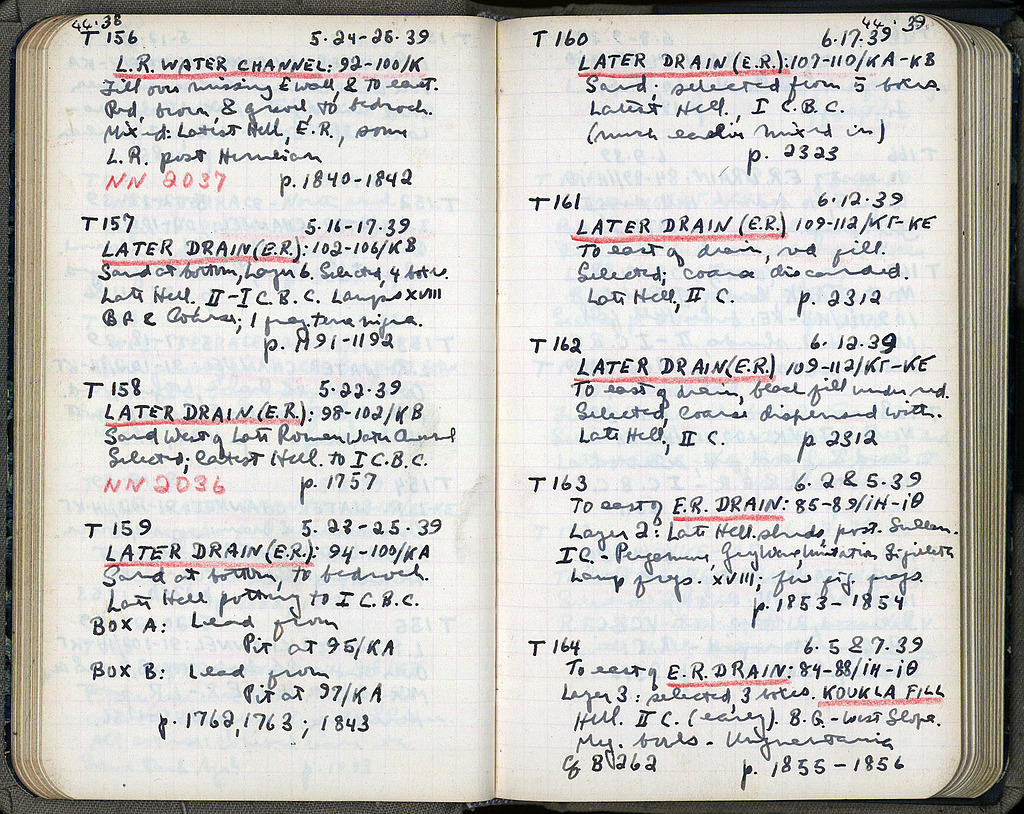 44.38
T 156 5.24-25.39
L.R. WATER CHANNEL: 92-100/K
Fill over missing E wall, & to east.
Red, brown, & gravel, to bedrock.
Mixed: Latest Hell, E.R., some
L.R. post Herulian
NN 2037 p. 1840-1842
T 157 5.16-17.39
LATER DRAIN (E.R.): 102-106/KB
Sand at bottom, Layer 6. Selected, 4 boxes.
Late Hell. II-I C.B.C. Lamps XVIII
BA & Coarse; 1 frag. terra nigra.
p. 1191-1192
T 158 5.22.39
LATER DRAIN (E.R.): 98-102/KB
Sand West of Late Roman Water Channel
Selected; latest Hell. to I C.B.C.
NN 2036 p. 1757
T 159 5.23-25.39
LATER DRAIN (E.R.): 94-100/KA
Sand at bottom, to bedrock.
Late Hell pottery to I C.B.C.
BOX A: Lead from
Pit at 95/KA
BOX B: Lead from
Pit at 97/KA
p. 1762, 1763; 1843
44.39
T 160 6.17.39
LATER DRAIN (E.R.): 107-110/KA-KB
Sand; selected from 5 boxes.
Latest Hell., I C.B.C.
(much earlier mixed in)
p. 2323
T 161 6.12.39
LATER DRAIN (E.R.) 109-112/KΓ-KE
To east of drain, red fill.
Selected; coarse discarded.
Late Hell, II C. p. 2312
T 162 6.12.39
LATER DRAIN (E.R.) 109-112/KΓ-KE
To east of drain, black fill under red.
Selected, coarse dispensed with.
Late Hell, II C. p. 2312
T 163 6.2 & 5.39
To east of E.R. DRAIN: 85-89/ΙΗ-ΙΘ
Layer 2: Late Hell. sherds, post. Sullan.
I C. - Pergamene, Grey Ware, imitation Sigillata
Lamp frags. XVIII; few fig. frags.
p. 1853-1854
T 164 6.5 & 7.39
To east of E.R. DRAIN: 84-88/ΙΗ-ΙΘ
Layer 3: selected, 3 boxes. KOUKLA FILL
Hell. II C. (early). B.G. - West Slope.
Meg. bowls - Unguentaria
cf B 262 p. 1855-1856